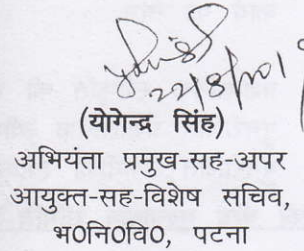 22/8/2011
(योगेन्द्र सिंह)
अभियंता प्रमुख-सह-अपर
आयुक्त-सह-विशेष सचिव,
भ०नि०वि०, पटना